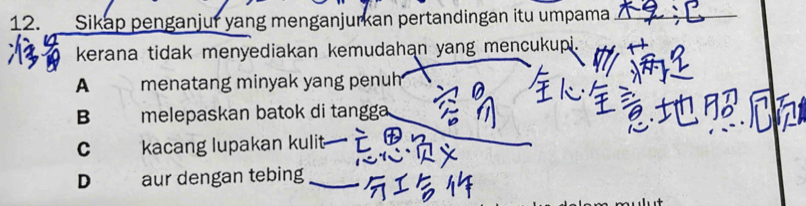 12. Sikap penganjur yang menganjurkan pertandingan itu umpama
准备 kerana tidak menyediakan kemudahan yang mencukupi.
A menatang minyak yang penuh 容易 满足 全心全意地照顾
B melepaskan batok di tangga
C kacang lupakan kulit 忘恩负义
D aur dengan tebing 分工合作